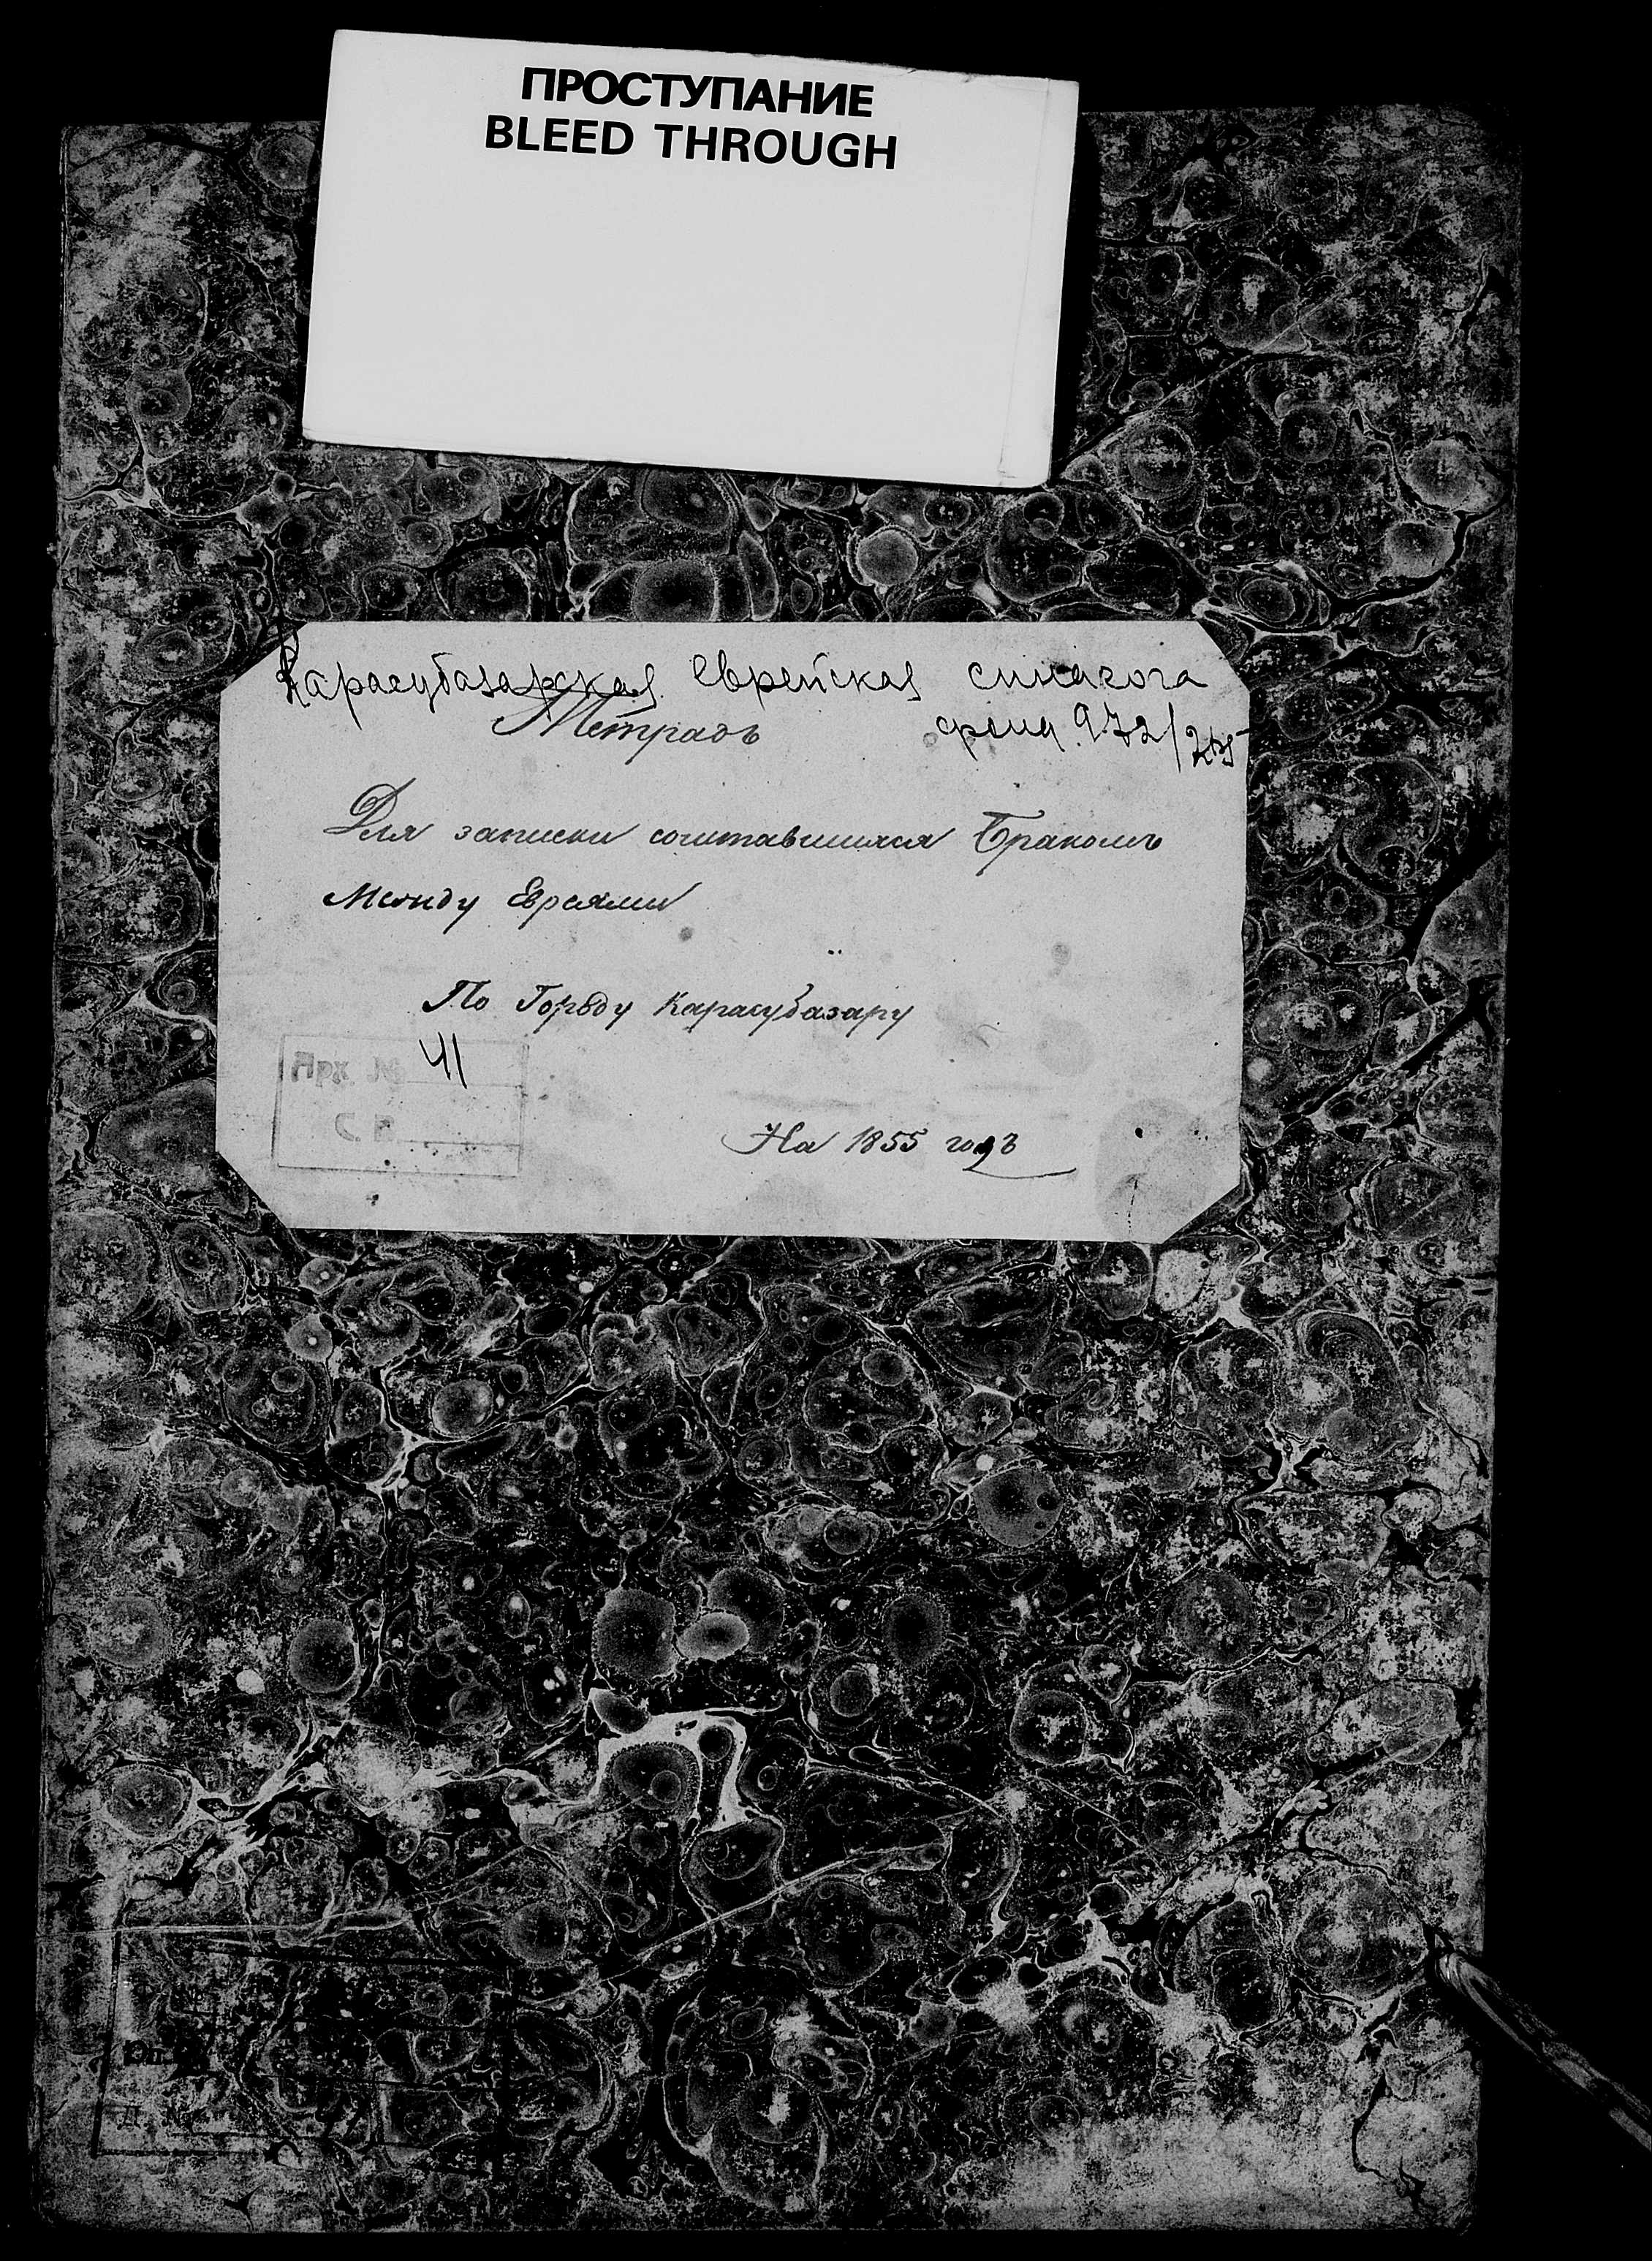 ПРОСТУПАНИЕ
BLEED THROUGH
Карасубазарская еврейская синагога
Тетрадь фонд 972/
Для записки сочитавшихся Бракомъ
Между Евреями
По Городу Карасубазару
Арх. № 41
На 1855 годъ